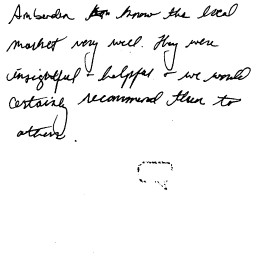 Amberden know the local
market very well. They were
insightful + helpful + we would
certainly recommend them to
others.